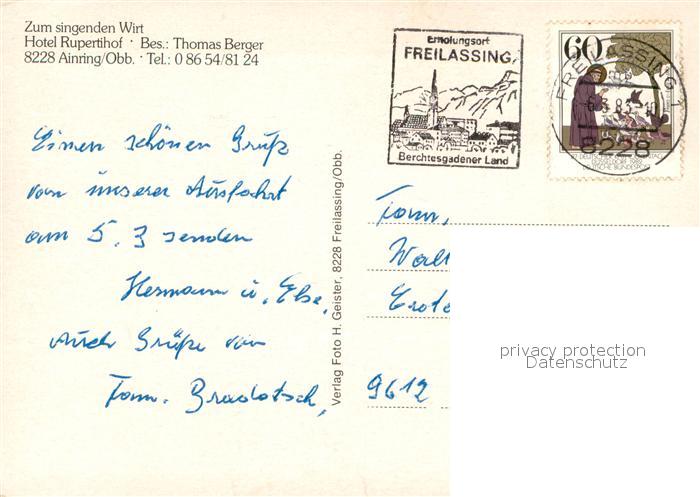 Zum singenden Wirt
Hotel Rupertihof · Bes.: Thomas Berger
8228 Ainring/Obb. · Tel.: 0 86 54/81 24
Erholungsort
FREILASSING
Berchtesgadener Land
60
FREILASSING 1
6.3.83-10
8228
Einen schönen Gruß
von unserer Ausfahrt
am 5.3 senden
Hermann u. Else,
Auch Grüße von
Fam. Bradatsch,
Verlag Foto H. Geister, 8228 Freilassing/Obb.
Fam,
9612
privacy protection
Datenschutz